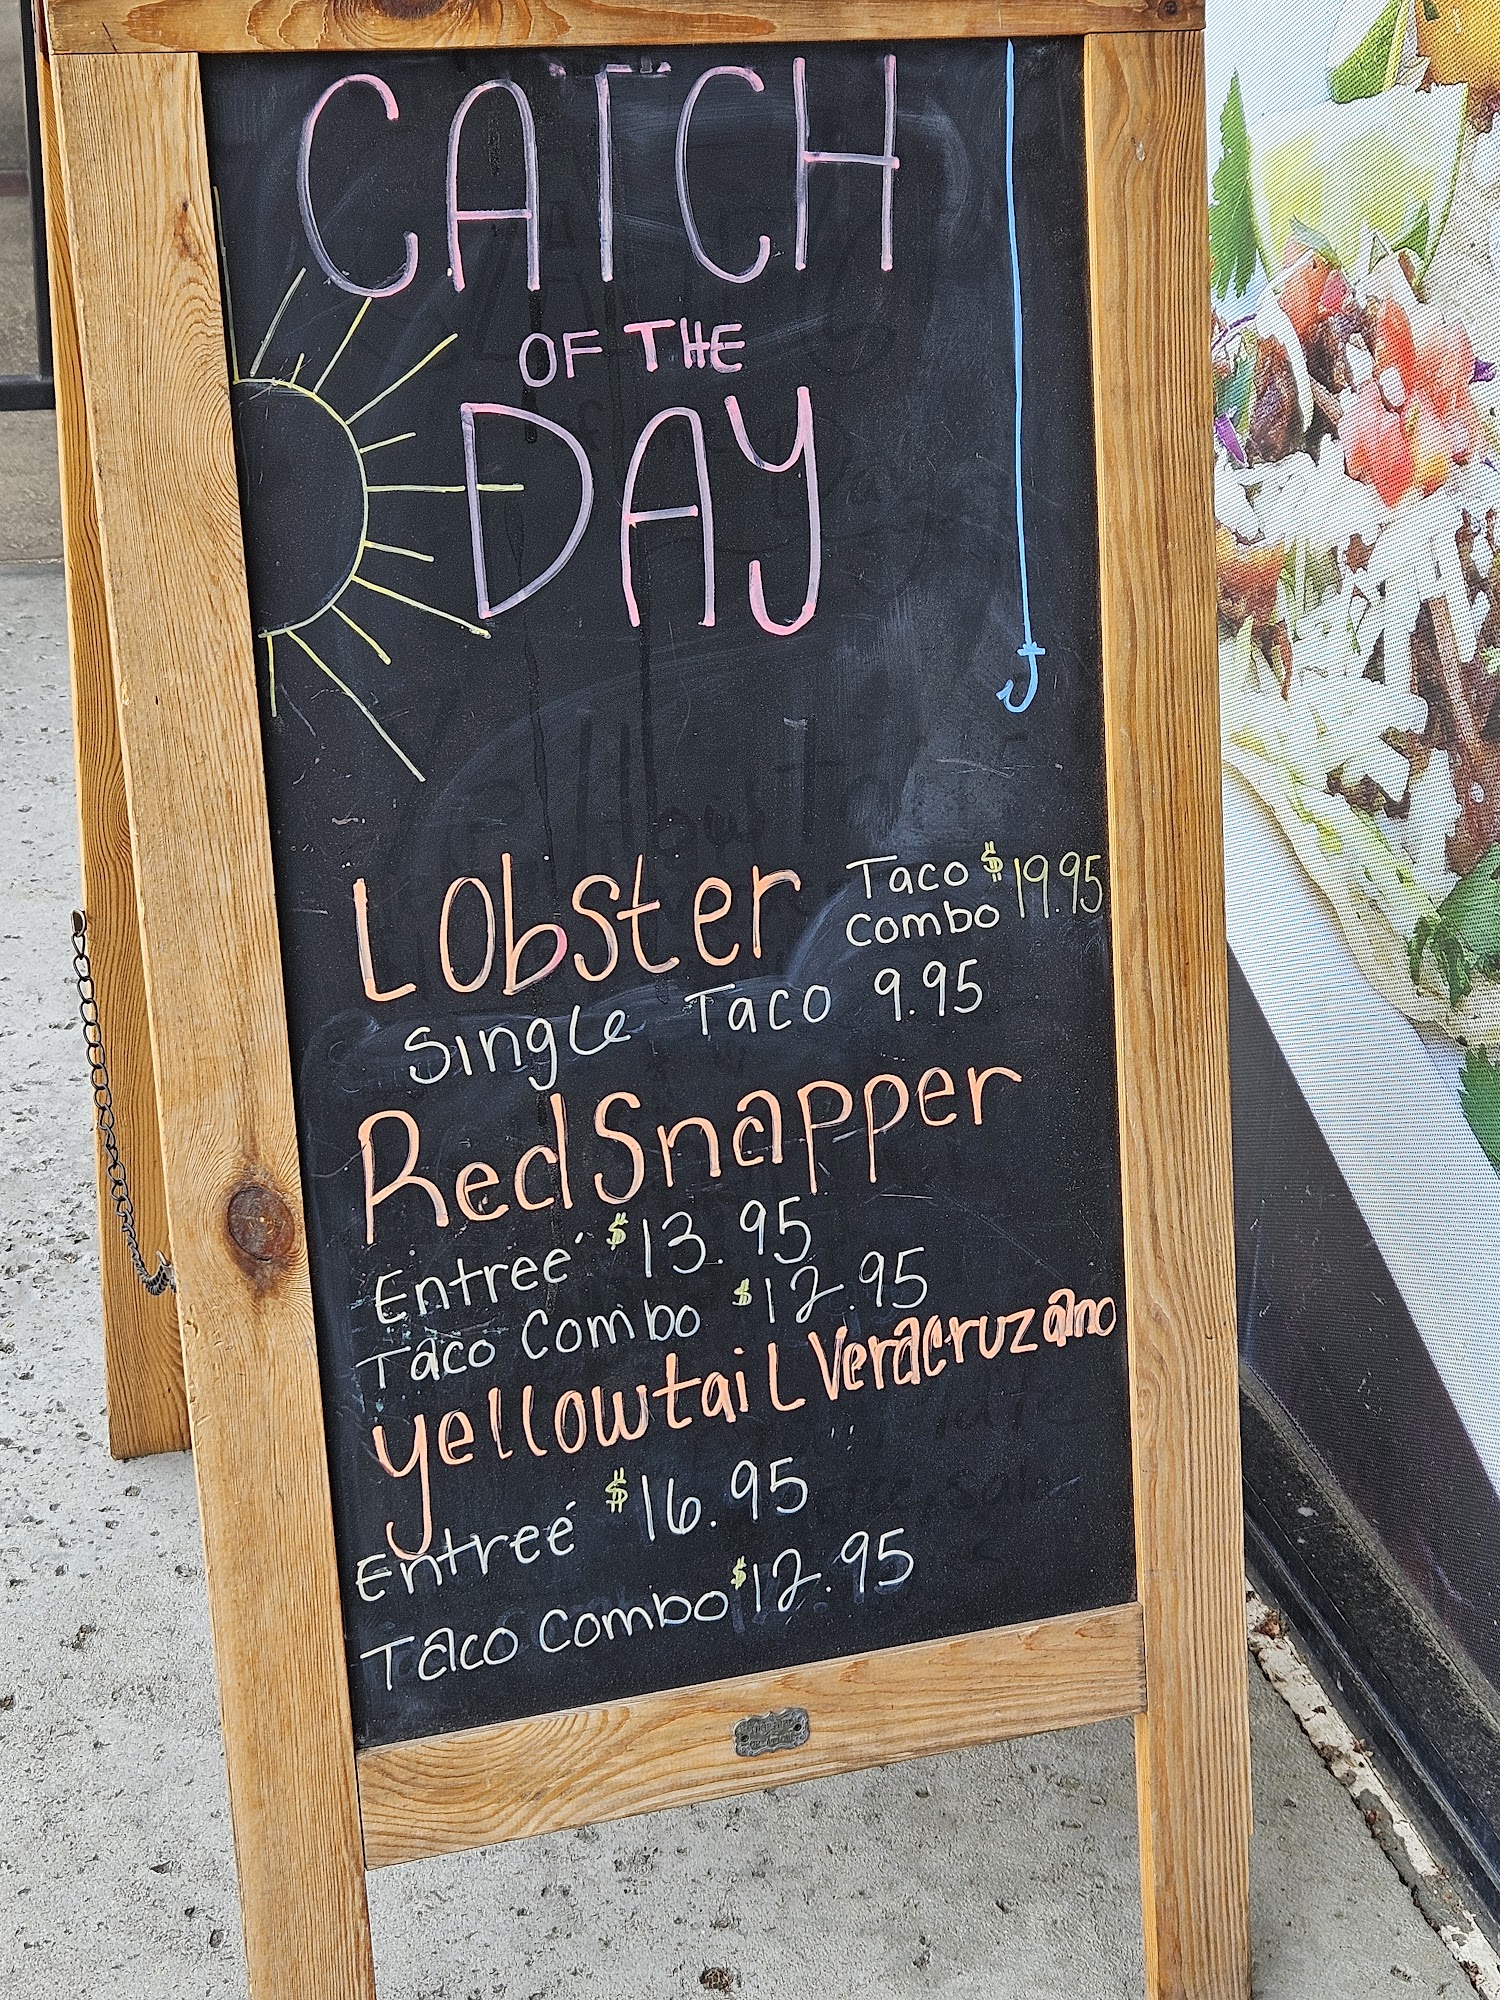 CATCH
OF THE
DAY
Lobster Taco Combo $19.95
Single Taco 9.95
Red Snapper
Entreé $13.95
Taco Combo $12.95
yellowtail Veracruzano
Entreé $16.95
Taco Combo $12.95